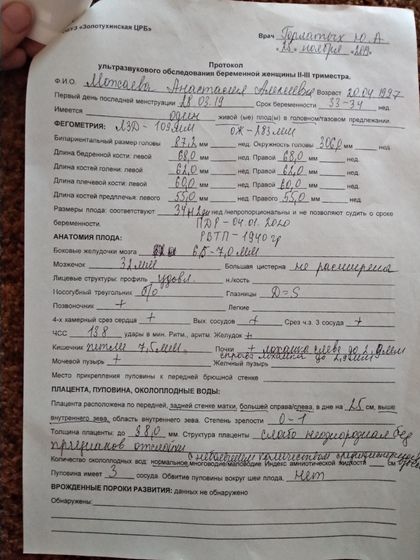 «Золотухинская ЦРБ»
Врач Горматых Ю.А
«25» ноября 2019
Протокол
ультразвукового обследования беременной женщины II-III триместра.
Ф.И.О. Анастасия Алексеевна Возраст 20.04.1997
Первый день последней менструации 28.03.19 Срок беременности 33-34 нед.
Имеется один живой (ые) плод(ы) в головном/тазовом предлежании.
ФЕТОМЕТРИЯ: ЛЗД - 109мм ОЖ - 283мм
Бипариентальный размер головы 87,2 мм нед. Окружность головы 306,0 мм нед.
Длина бедренной кости: левой 68,0 мм нед. Правой 68,0 мм нед.
Длина костей голени: левой 62,0 мм нед. Правой 62,0 мм нед.
Длина плечевой кости: левой 60,0 мм нед. Правой 60,0 мм нед.
Длина костей предплечья: левого 55,0 мм нед. Правого 55,0 мм нед.
Размеры плода: соответствуют 34н2д нед./непропорциональны и не позволяют судить о сроке
беременности. ПДР - 04.01.2020
АНАТОМИЯ ПЛОДА: - 1940гр
Боковые желудочки мозга 6,5 - 7,0мм
Мозжечок 32мм Большая цистерна не расширена
Лицевые структуры: профиль удовл. н./кость
Носогубный треугольник б/о Глазницы D=S
Позвоночник + Легкие
4-х камерный срез сердца + Вых. сосудов + Срез ч.з. 3 сосуда +
ЧСС 138 ударов в мин. Ритм., аритм. Желудок +
Кишечник петли 7,5мм. Почки + лоханка слева до 2,0мм
справа лоханка до
Мочевой пузырь + Желчный пузырь
Место прикрепления пуповины к передней брюшной стенке
ПЛАЦЕНТА, ПУПОВИНА, ОКОЛОПЛОДНЫЕ ВОДЫ:
Плацента расположена по передней, задней стенке матки, большей справа/слева, в дне на 25 см, выше
внутреннего зева, область внутреннего зева. Степень зрелости 0-1
Толщина плаценты до 38,0 мм. Структура плаценты слабо неоднородная без
признаков отслойки
с небольшим количеством
Количество околоплодных вод: нормальное, многоводие/маловодие Индекс амниотической жидкости см
Пуповина имеет 3 сосуда Обвитие пуповины вокруг шеи плода. нет
ВРОЖДЕННЫЕ ПОРОКИ РАЗВИТИЯ: данных не обнаружено
Обнаружены: